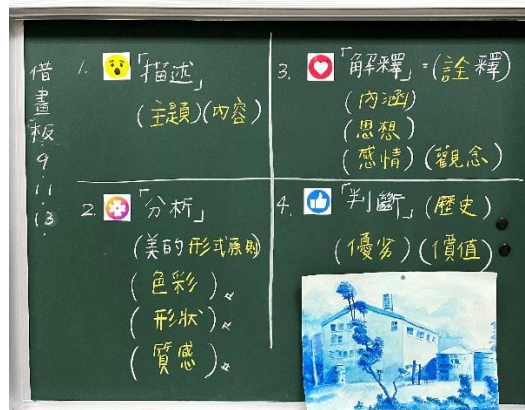 借畫板 9. 11. 13.
1. 「描述」
(主題)(內容)
2. 「分析」
(美的形式原則)
(色彩)。
(形狀)。
(質感)。
3. 「解釋」=(詮釋)
(內涵)
(思想)
(感情)(觀念)
4. 「判斷」(歷史)
(優劣)(價值)